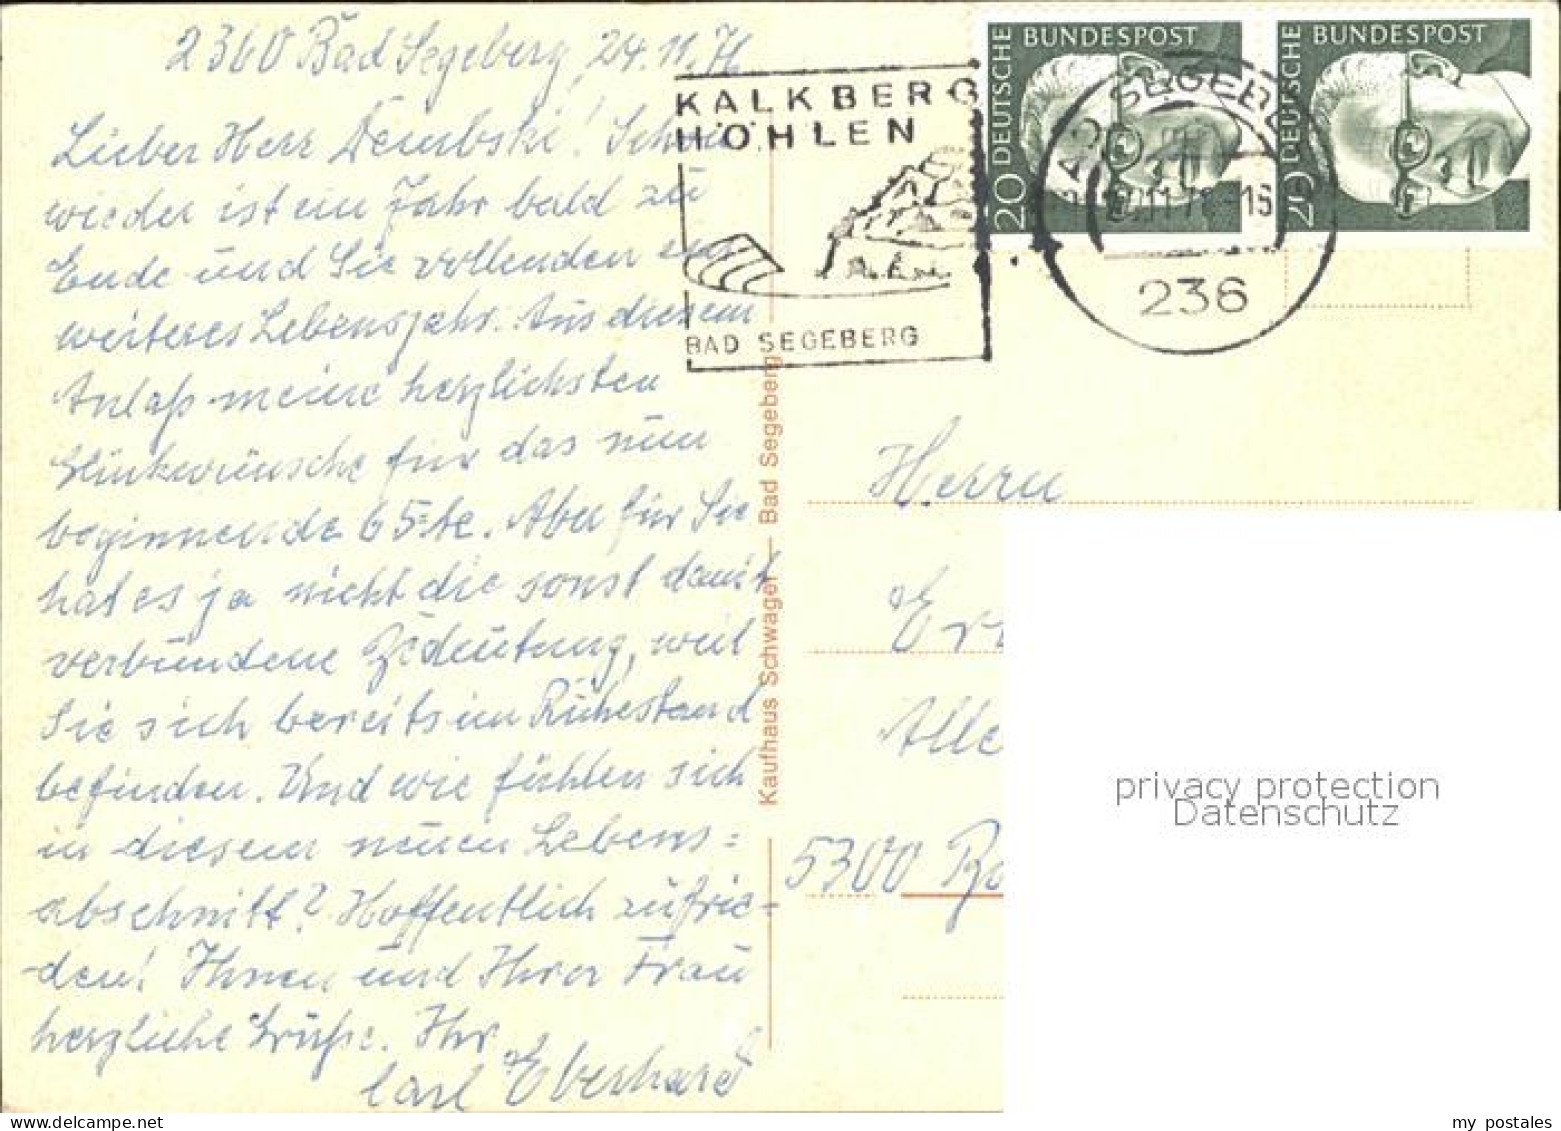 2360 Bad Segeberg, 24.11.76
Lieber Herr Dembski! Schon
wieder ist ein Jahr bald zu
Ende und Sie vollenden ein
weiteres Lebensjahr. Aus diesem
Anlaß meine herzlichsten
Glückwünsche für das nun
beginnende 65=te. Aber für Sie
hat es ja nicht die sonst damit
verbundene Bedeutung, weil
Sie sich bereits im Ruhestand
befinden. Und wie fühlen sich
in diesem neuen Lebens=
abschnitt? Hoffentlich zufrie=
den! Ihnen und Ihrer Frau
herzliche Grüße. Ihr
Carl Eberhard
KALKBERG
HÖHLEN
BAD SEGEBERG
DEUTSCHE BUNDESPOST
20
DEUTSCHE BUNDESPOST
20
BAD SEGEBERG
236
Kaufhaus Schwager – Bad Segeberg
Herrn
Er
Alle
5300 Bo
privacy protection
Datenschutz
my postales